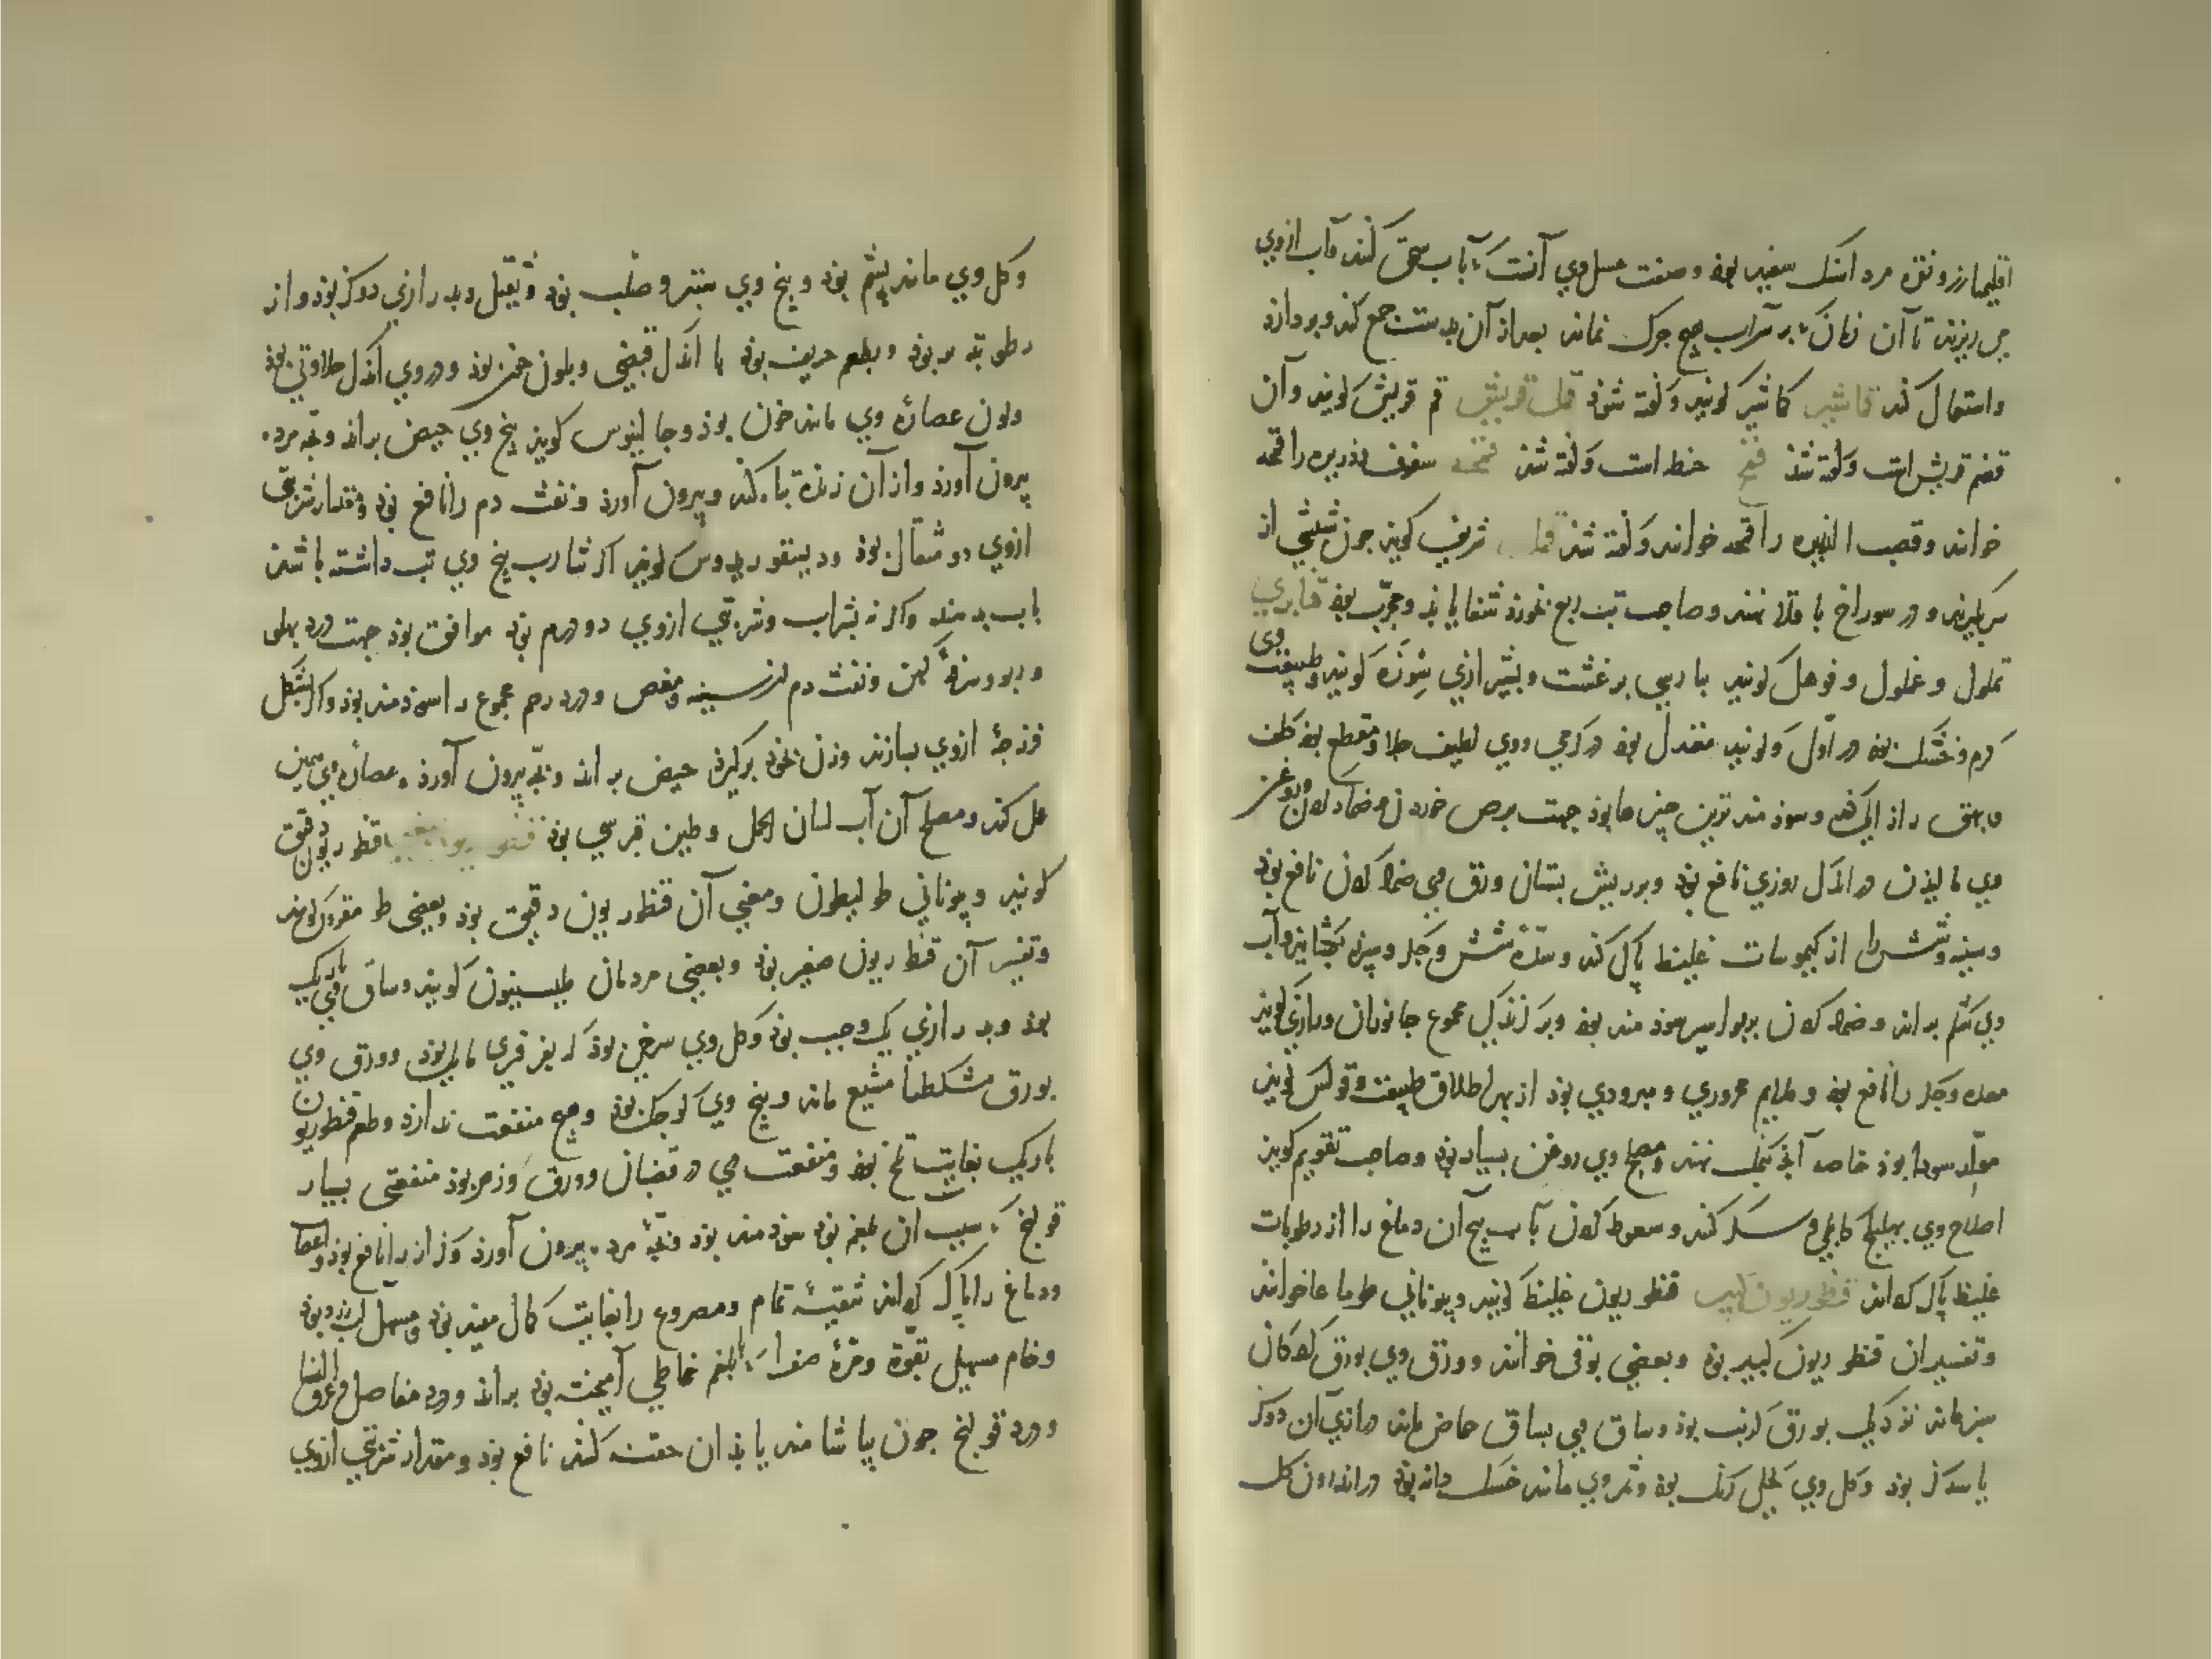 اقلیمیا زر و نقره مرداسنک سفید بوذ و صفت غسل وی آنست کی بآب سحق کنند و آب از وی
می ریزند تا آن زمان کی بر سر آب هیچ جرک نماند بعد از آن بدست جمع کند و بردارد
و استعمال کند قاشیر کاشیر کویند و کفته شوذ قمل قریش قم قریش کویند و آن
قضم قریش است و کفته شذ قمح حنطه است و کفته شذ قمحه سفوف ذریره را قمحه
خوانند و قصب الذریره را قمحه خوانند و کفته شذ شریف کویند جون شبشی از
سر کیرند و در سوراخ باقلا نهند و صاحب تب ربع بخورذ شفا یابذ و مجرب بوذ قنابری
تملول و غملول و قوهل کویند بپارسی برغشت و بشیرازی شوزه کویند و طبیعت وی
کرم و خشک بوذ در اول و کویند معتدل بوذ در کرمی و وی لطیف جلا و مقطع بوذ کلف
و بهق را زایل کند و سوذمندترین چیزها بوذ جهت برص خوردن و ضماد کردن و روغن
وی مالیذن در اندک روزی نافع بوذ و بر ریش پستان ورق وی ضماد کردن نافع بوذ
و سینه و شش را از کیموسات غلیظ پاک کند و سده شش و جکر و سپرز بکشایذ و آب
وی شکم براند و ضماد کردن بر بواسیر سوذمند بوذ و بر کزندکی مجموع جانوران و رازی کویند
معده و جکر را نافع بوذ و ملایم محروری و مبرودی بوذ از بهر اطلاق طبیعت و قولس کویذ
مولد سودا بوذ خاصه آنج بنمک نهند و مصلح وی روغن بسیار بوذ و صاحب تقویم کویذ
اصلاح وی بهلیلج کابلی و سکر کنند و سعوط کردن بآب بیخ آن دماغ را از رطوبات
غلیظ پاک کرداند قنطوریون کبیر قنطوریون غلیظ کویند و یونانی طوماغا خوانند
و تفسیر ان قنطوریون کبیر بوذ و بعضی بوقی خوانند و ورق وی بورق کوکان
سبز ماند نزدیک بورق کرنب بوذ و ساق وی بساق حماض ماند درازی آن دو کز
یا سه کز بوذ و کل وی کحلی رنک بوذ و ثمر وی مانند خسک دانه بوذ در اندرون کل
و کل وی مانند پشم بوذ و بیخ وی ستبر و صلب بوذ و ثقیل و بدرازی دو کز بوذ و از
رطوبت پر بوذ و بطعم حریف بوذ با اندک قبضی و بلون خون بوذ و در وی اندک حلاوتی بوذ
و لون عصاره وی مانند خون بوذ و جالینوس کویذ بیخ وی حیض براند و بچه مرده
بیرون آورد و از آن زنده تباه کند و بیرون آورد و نفث دم را نافع بوذ و مقدار شربتی
از وی دو مثقال بوذ و دیسقوریدوس کویذ اکر شارب بیخ وی تب داشته باشذ
بآب بدهند و اکر نه بشراب و شربتی از وی دو درم بوذ موافق بوذ جهت درد پهلو
و ربو و سرفه کهن و نفث دم از سینه و مغص و درد رحم مجموع را سوذمند بوذ و اکر بشکل
فرزجه از وی بسازند و زن بخوذ برکیرد حیض براند و بچه بیرون آورد و عصاره وی همین
عمل کند و مصلح آن آب لسان الحمل و طین قبرسی بوذ قنطوریون صغیر قنطوریون دقیق
کویند و یونانی طولیطون و معنی آن قنطوریون دقیق بوذ و بعضی طومقرن کویند
و تفسیر آن قنطوریون صغیر بوذ و بعضی مردمان طیسیون کویند و ساق وی باریک
بوذ و بدرازی یک وجب بوذ و کل وی سرخ بوذ که بفرفیری مایل بوذ و ورق وی
بورق مشکطرامشیع ماند و بیخ وی کوجک بوذ و هیچ منفعت ندارد و طعم قنطوریون
باریک بغایت تلخ بوذ و منفعت وی در قضبان و ورق و زهر بوذ منفعتی بسیار
قولنج کی سبب ان بلغم بوذ سوذمند بوذ و بچه مرده بیرون آورد و کزاز را نافع بوذ و اعصاب
و دماغ را پاک کرداند تنقیه تمام و مصروع را بغایت کمال مفید بوذ و مسهل لزوج بوذ
و خام مسهل بقوة و مرة صفرا کی با بلغم مخاطی آمیخته بوذ براند و درد مفاصل و عرق النسا
و درد قولنج جون بیاشامند یا بذان حقنه کنند نافع بوذ و مقدار شربتی از وی